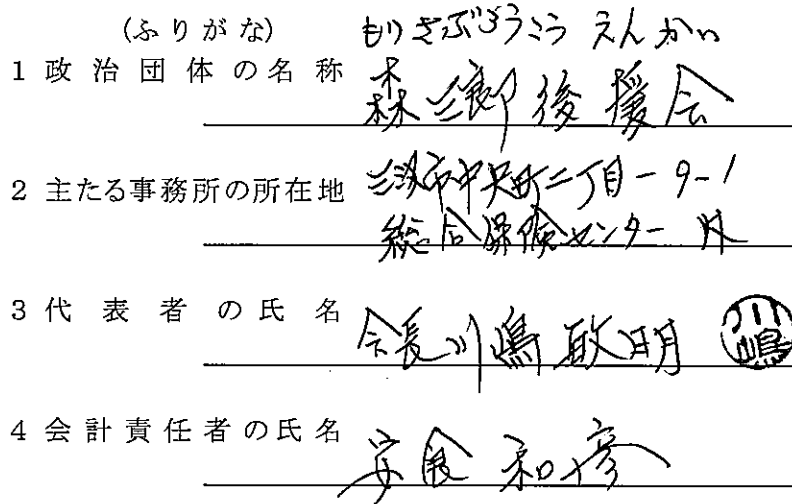 (ふりがな) もりさぶろうこうえんかい
1 政治団体の名称 森三郎後援会
2 主たる事務所の所在地 三沢市中央町二丁目-9-1
総合保険センター内
3 代表者の氏名 会長 川嶋敏明 川嶋
4 会計責任者の氏名 安食和彦